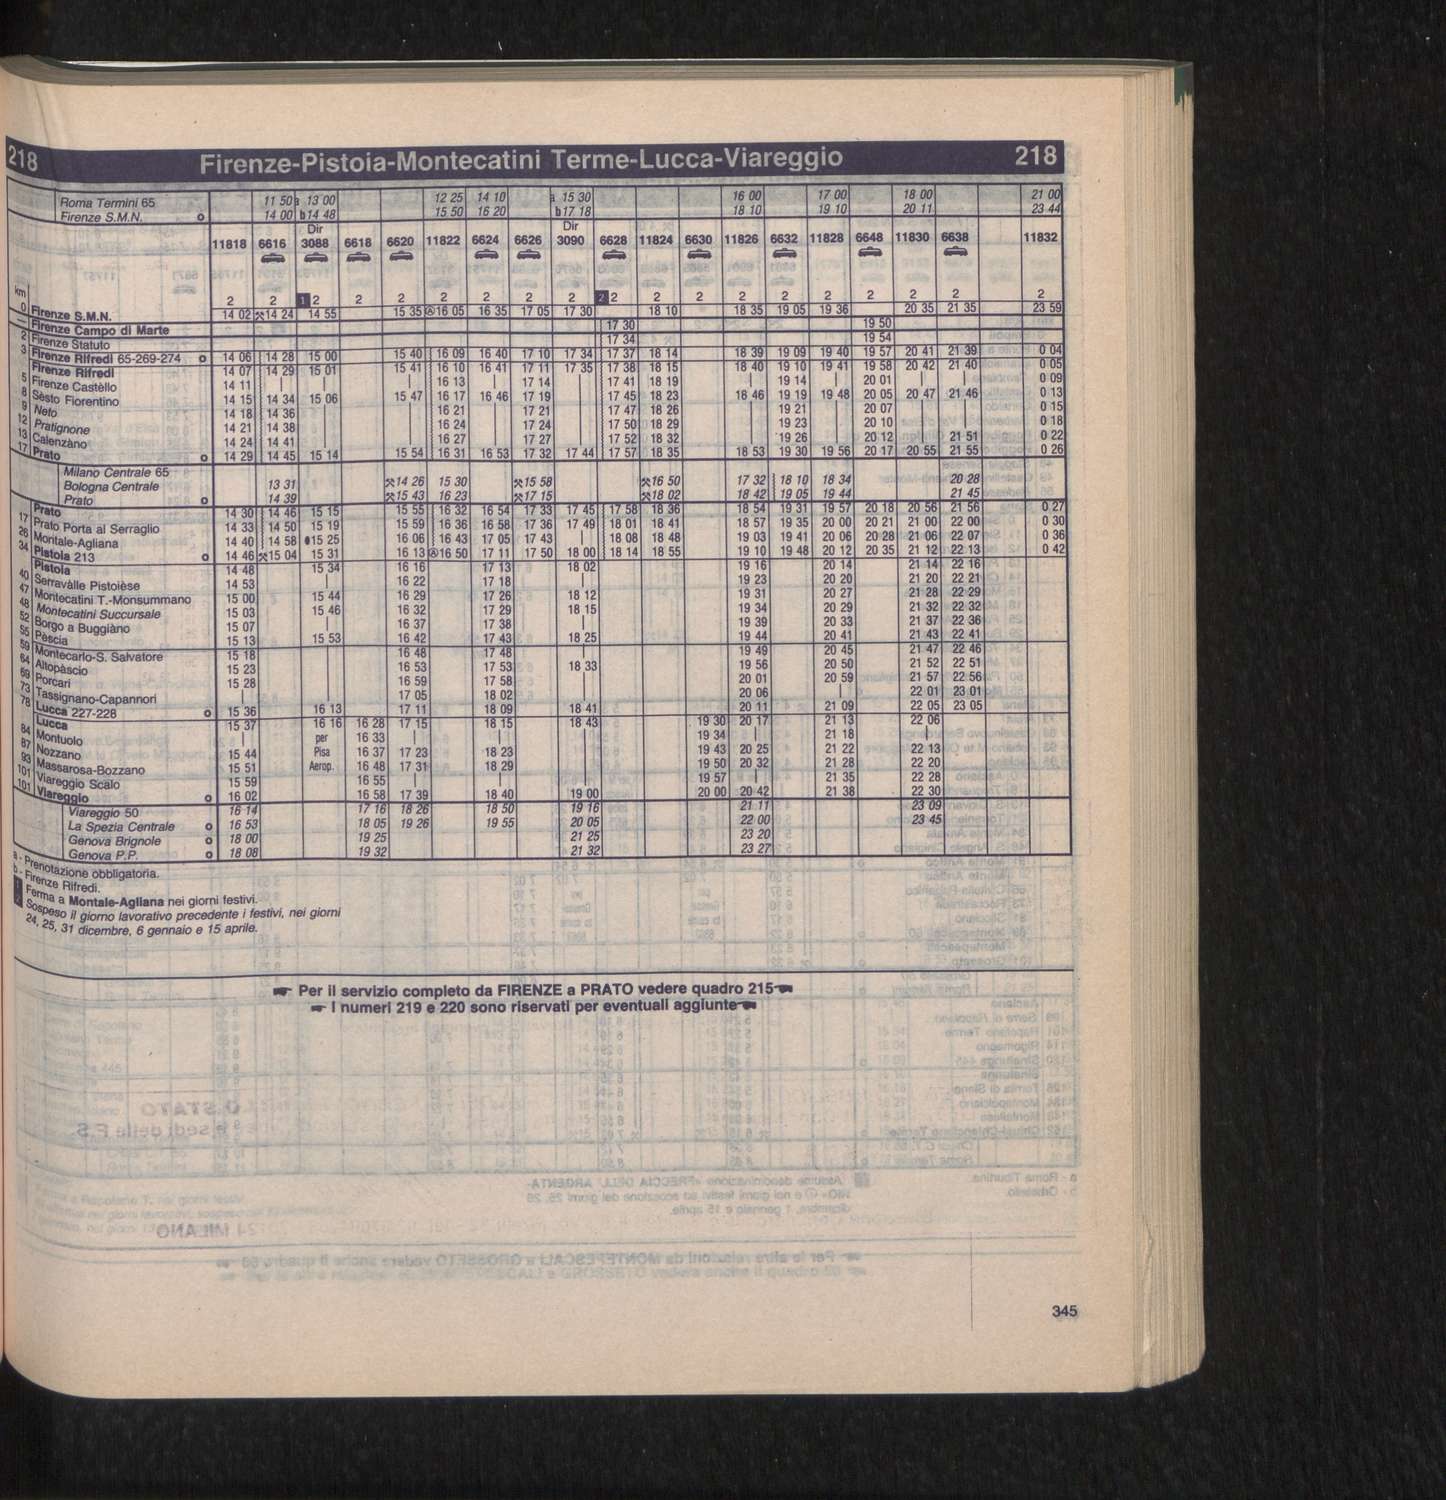 218 Firenze-Pistoia-Montecatini Terme-Lucca-Viareggio 218
Roma Termini 65 11 50 a 13 00 12 25 14 10 a 15 30 16 00 17 00 18 00 21 00
Firenze S.M.N. o 14 00 b 14 48 15 50 16 20 b 17 18 18 10 19 10 20 11 23 44
Dir Dir
11818 6616 3088 6618 6620 11822 6624 6626 3090 6628 11824 6630 11826 6632 11828 6648 11830 6638 11832
km 2 2 1 2 2 2 2 2 2 2 2 2 2 2 2 2 2 2 2 2 2
0 Firenze S.M.N. 14 02 ⚒14 24 14 55 15 35 Ⓐ16 05 16 35 17 05 17 30 18 10 18 35 19 05 19 36 20 35 21 35 23 59
— Firenze Campo di Marte 17 30 19 50
2 Firenze Statuto 17 34 19 54
3 Firenze Rifredi 65-269-274 o 14 06 14 28 15 00 15 40 16 09 16 40 17 10 17 34 17 37 18 14 18 39 19 09 19 40 19 57 20 41 21 39 0 04
Firenze Rifredi 14 07 14 29 15 01 15 41 16 10 16 41 17 11 17 35 17 38 18 15 18 40 19 10 19 41 19 58 20 42 21 40 0 05
5 Firenze Castèllo 14 11 | | | 16 13 | 17 14 | 17 41 18 19 | 19 14 | 20 01 | | 0 09
8 Sèsto Fiorentino 14 15 14 34 15 06 15 47 16 17 16 46 17 19 | 17 45 18 23 18 46 19 19 19 48 20 05 20 47 21 46 0 13
9 Neto 14 18 14 36 | | 16 21 | 17 21 | 17 47 18 26 | 19 21 | 20 07 | | 0 15
12 Pratignone 14 21 14 38 | | 16 24 | 17 24 | 17 50 18 29 | 19 23 | 20 10 | | 0 18
13 Calenzàno 14 24 14 41 | | 16 27 | 17 27 | 17 52 18 32 | 19 26 | 20 12 | 21 51 0 22
17 Prato o 14 29 14 45 15 14 15 54 16 31 16 53 17 32 17 44 17 57 18 35 18 53 19 30 19 56 20 17 20 55 21 55 0 26
Milano Centrale 65
Bologna Centrale 13 31 ⚒14 26 15 30 ⚒15 58 ⚒16 50 17 32 18 10 18 34 20 28
Prato o 14 39 ⚒15 43 16 23 ⚒17 15 ⚒18 02 18 42 19 05 19 44 21 45
Prato 14 30 14 46 15 15 15 55 16 32 16 54 17 33 17 45 17 58 18 36 18 54 19 31 19 57 20 18 20 56 21 56 0 27
17 Prato Porta al Serraglio 14 33 14 50 15 19 15 59 16 36 16 58 17 36 17 49 18 01 18 41 18 57 19 35 20 00 20 21 21 00 22 00 0 30
26 Montale-Agliana 14 40 14 58 15 25 16 06 16 43 17 05 17 43 | 18 08 18 48 19 03 19 41 20 06 20 28 21 06 22 07 0 36
34 Pistoia 213 o 14 46 ⚒15 04 15 31 16 13 Ⓐ16 50 17 11 17 50 18 00 18 14 18 55 19 10 19 48 20 12 20 35 21 12 22 13 0 42
Pistoia 14 48 15 34 16 16 17 13 18 02 19 16 20 14 21 14 22 16
40 Serravàlle Pistoièse 14 53 | 16 22 17 18 | 19 23 20 20 21 20 22 21
47 Montecatini T.-Monsummano 15 00 15 44 16 29 17 26 18 12 19 31 20 27 21 28 22 29
48 Montecatini Succursale 15 03 15 46 16 32 17 29 18 15 19 34 20 29 21 32 22 32
52 Borgo a Buggiàno 15 07 | 16 37 17 38 | 19 39 20 33 21 37 22 36
55 Pèscia 15 13 15 53 16 42 17 43 18 25 19 44 20 41 21 43 22 41
59 Montecarlo-S. Salvatore 15 18 | 16 48 17 48 | 19 49 20 45 21 47 22 46
64 Altopàscio 15 23 | 16 53 17 53 18 33 19 56 20 50 21 52 22 51
69 Porcari 15 28 | 16 59 17 58 | 20 01 20 59 21 57 22 56
73 Tassignano-Capannori | | 17 05 18 02 | 20 06 | 22 01 23 01
78 Lucca 227-228 o 15 36 16 13 17 11 18 09 18 41 20 11 21 09 22 05 23 05
Lucca 15 37 16 16 16 28 17 15 18 15 18 43 19 30 20 17 21 13 22 06
84 Montuolo | per 16 33 | | | 19 34 | 21 18 |
87 Nozzano 15 44 Pisa 16 37 17 23 18 23 | 19 43 20 25 21 22 22 13
93 Massarosa-Bozzano 15 51 Aerop. 16 48 17 31 18 29 | 19 50 20 32 21 28 22 20
101 Viareggio Scalo 15 59 16 55 | | | 19 57 | 21 35 22 28
101 Viareggio o 16 02 16 58 17 39 18 40 19 00 20 00 20 42 21 38 22 30
Viareggio 50 16 14 17 16 18 26 18 50 19 16 21 11 23 09
La Spezia Centrale o 16 53 18 05 19 26 19 55 20 05 22 00 23 45
Genova Brignole o 18 00 19 25 21 25 23 20
Genova P.P. o 18 08 19 32 21 32 23 27
a - Prenotazione obbligatoria.
b - Firenze Rifredi.
1 Ferma a Montale-Agliana nei giorni festivi.
2 Sospeso il giorno lavorativo precedente i festivi, nei giorni
24, 25, 31 dicembre, 6 gennaio e 15 aprile.
☛ Per il servizio completo da FIRENZE a PRATO vedere quadro 215 ☚
☛ I numeri 219 e 220 sono riservati per eventuali aggiunte ☚
345